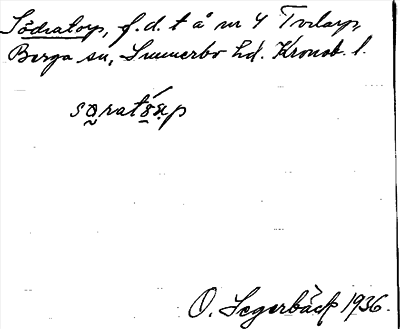 Södratorp, f.d. t å nr 4 Tvilarp,
Berga sn, Sunnerbo hd. Kronob. l.
sǫratǫ́rp
O. Segerbäck 1936.